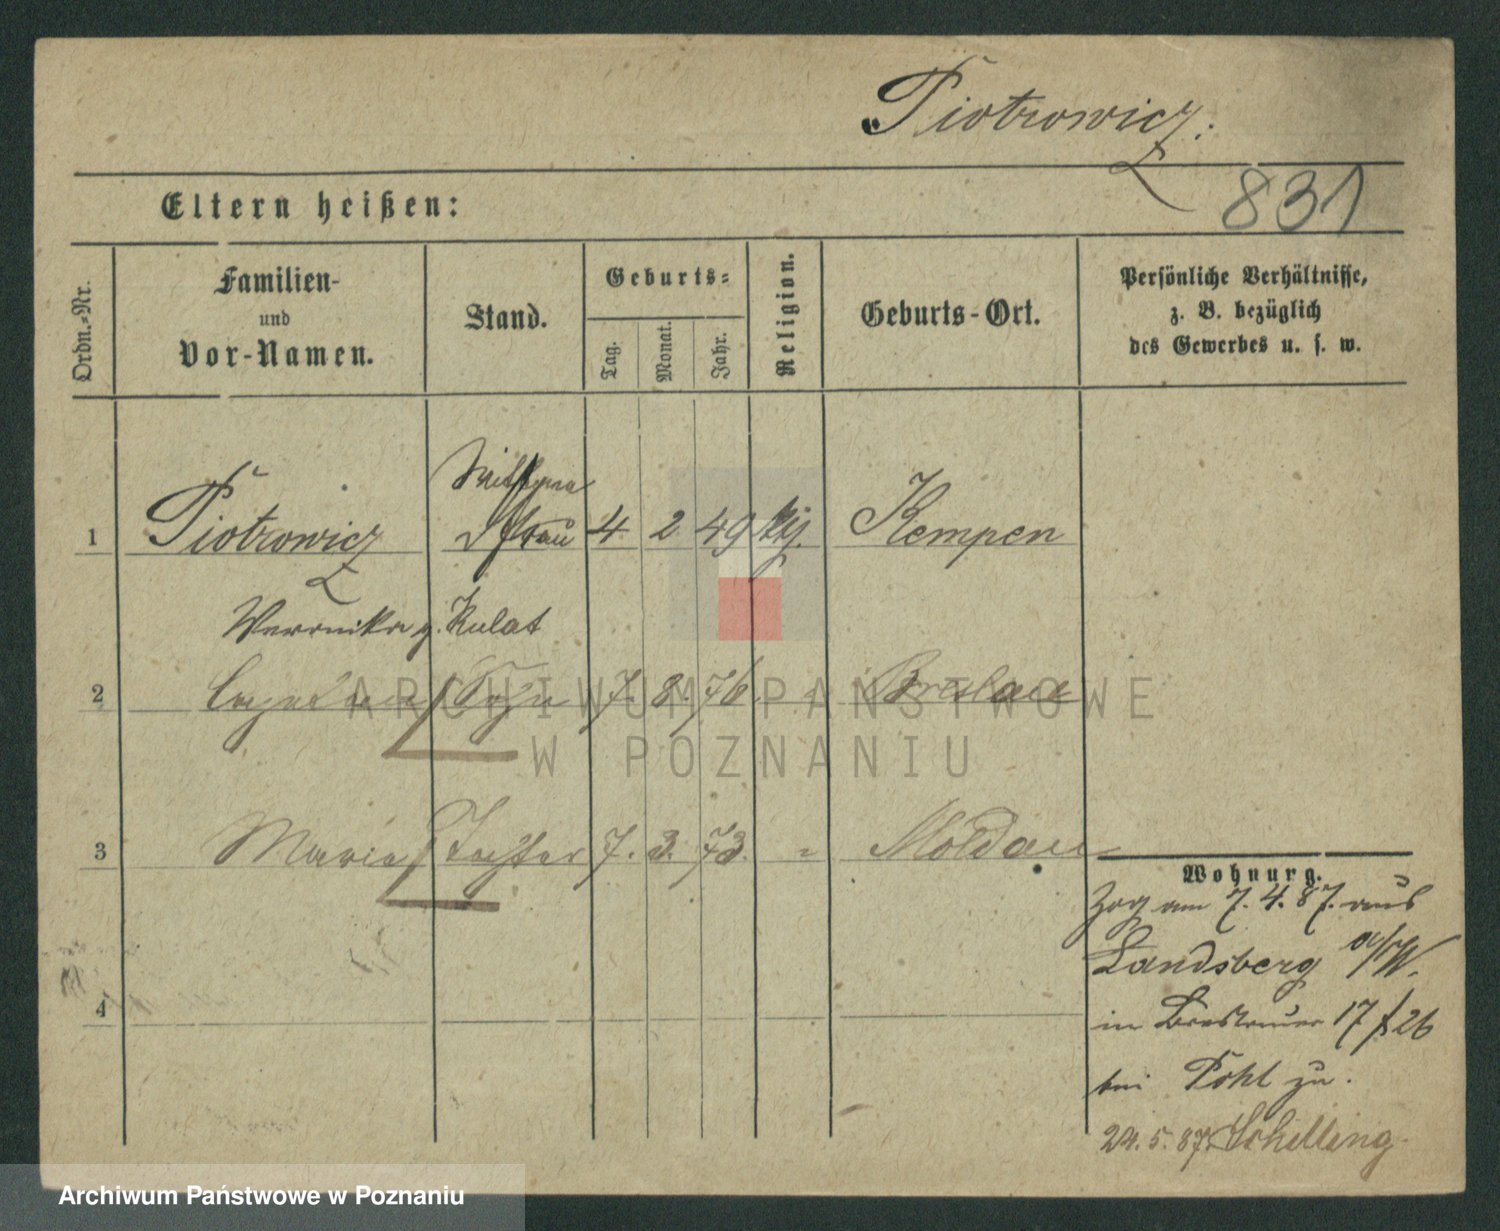 Piotrowicz.
831
Eltern heißen:
Ordn.-Nr.
Familien-
und
Vor-Namen.
Stand.
Geburts-
Tag.
Monat.
Jahr.
Religion.
Geburts-Ort.
Persönliche Verhältnisse,
z. B. bezüglich
des Gewerbes u. s. w.
1 Piotrowicz frau 4 2 49 Kempen
Veronika g. Kulat
2 Sohn 7. 8. 76. Breslau
3 Maria Tochter 7. 3. 73. - Moldau
4
Wohnung.
Zog am 7. 4. 87. aus
Landsberg a/W.
in Breslauer 17/26
bei Pohl zu.
24. 5. 87. Schilling
ARCHIWUM PAŃSTWOWE
W POZNANIU
Archiwum Państwowe w Poznaniu